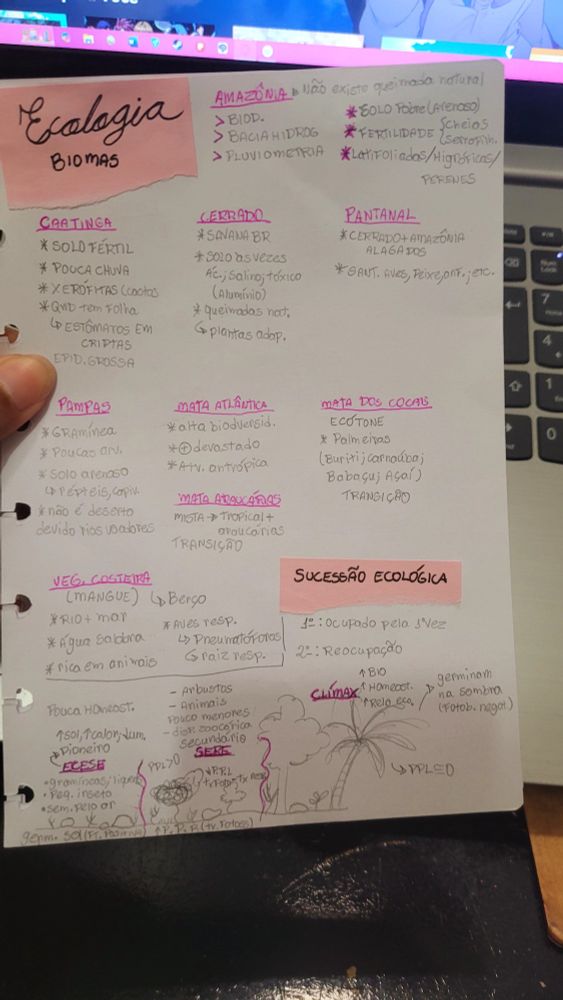 Ecologia
BIOMAS
AMAZÔNIA → Não existe queimada natural
> BIOD.
> BACIA HIDROG
> PLUVIOMETRIA
* SOLO Pobre (Arenoso)
* FERTILIDADE { cheias
* LATIFOLIADAS/HIGRÓFICAS/
PERENES
CAATINGA
* SOLO FÉRTIL
* POUCA CHUVA
* XERÓFITAS (cactos
* QND tem Folha
↳ ESTÔMATOS EM
CRIPTAS
EPID. GROSSA
CERRADO
* SAVANA BR
* SOLO às vezes
Ác., salino, tóxico
(Alumínio)
* queimadas nat.
↳ plantas adap.
PANTANAL
* CERRADO + AMAZÔNIA
ALAGADOS
* SANT. AVES, Peixe, anf., etc.
PAMPAS
* GRAMínea
* Poucas arv.
* Solo arenoso
↳ répteis, capiv.
* não é deserto
devido rios voadores
MATA ATLÂNTICA
* alta biodversid.
* ⊕ devastado
* Atv. antrópica
MATA ARAUCÁRIAS
MISTA → Tropical +
araucárias
TRANSIÇÃO
MATA DOS COCAIS
ECÓTONE
* Palmeiras
(Buriti; carnaúba;
Babaçu; Açaí)
TRANSIÇÃO
VEG. COSTEIRA
(MANGUE) ↳ Berço
* RIO + mar
* Água salobra
* rica em animais
* Aves resp.
↳ Pneumatóforos
↳ raiz resp.
SUCESSÃO ECOLÓGICA
1º: ocupado pela 1ª vez
2º: Reocupação
Pouca Homeost.
↑ sol, ↑ calor, ↓um.
↳ Pioneiro
ECESE
• gramíneas, liquen
• Peq. inseto
• sem. pelo ar
germ. sol (Ft. Positiva)
- Arbustos
- Animais
pouco menores
- disp. zoocórica
secundário
SERE
PPL>0
↓ PPL
CLÍMAX
↑ BIO
↑ Homeost.
↑ Rela eco.
germinam
na sombra
(Fotob. negat)
↳ PPL=0